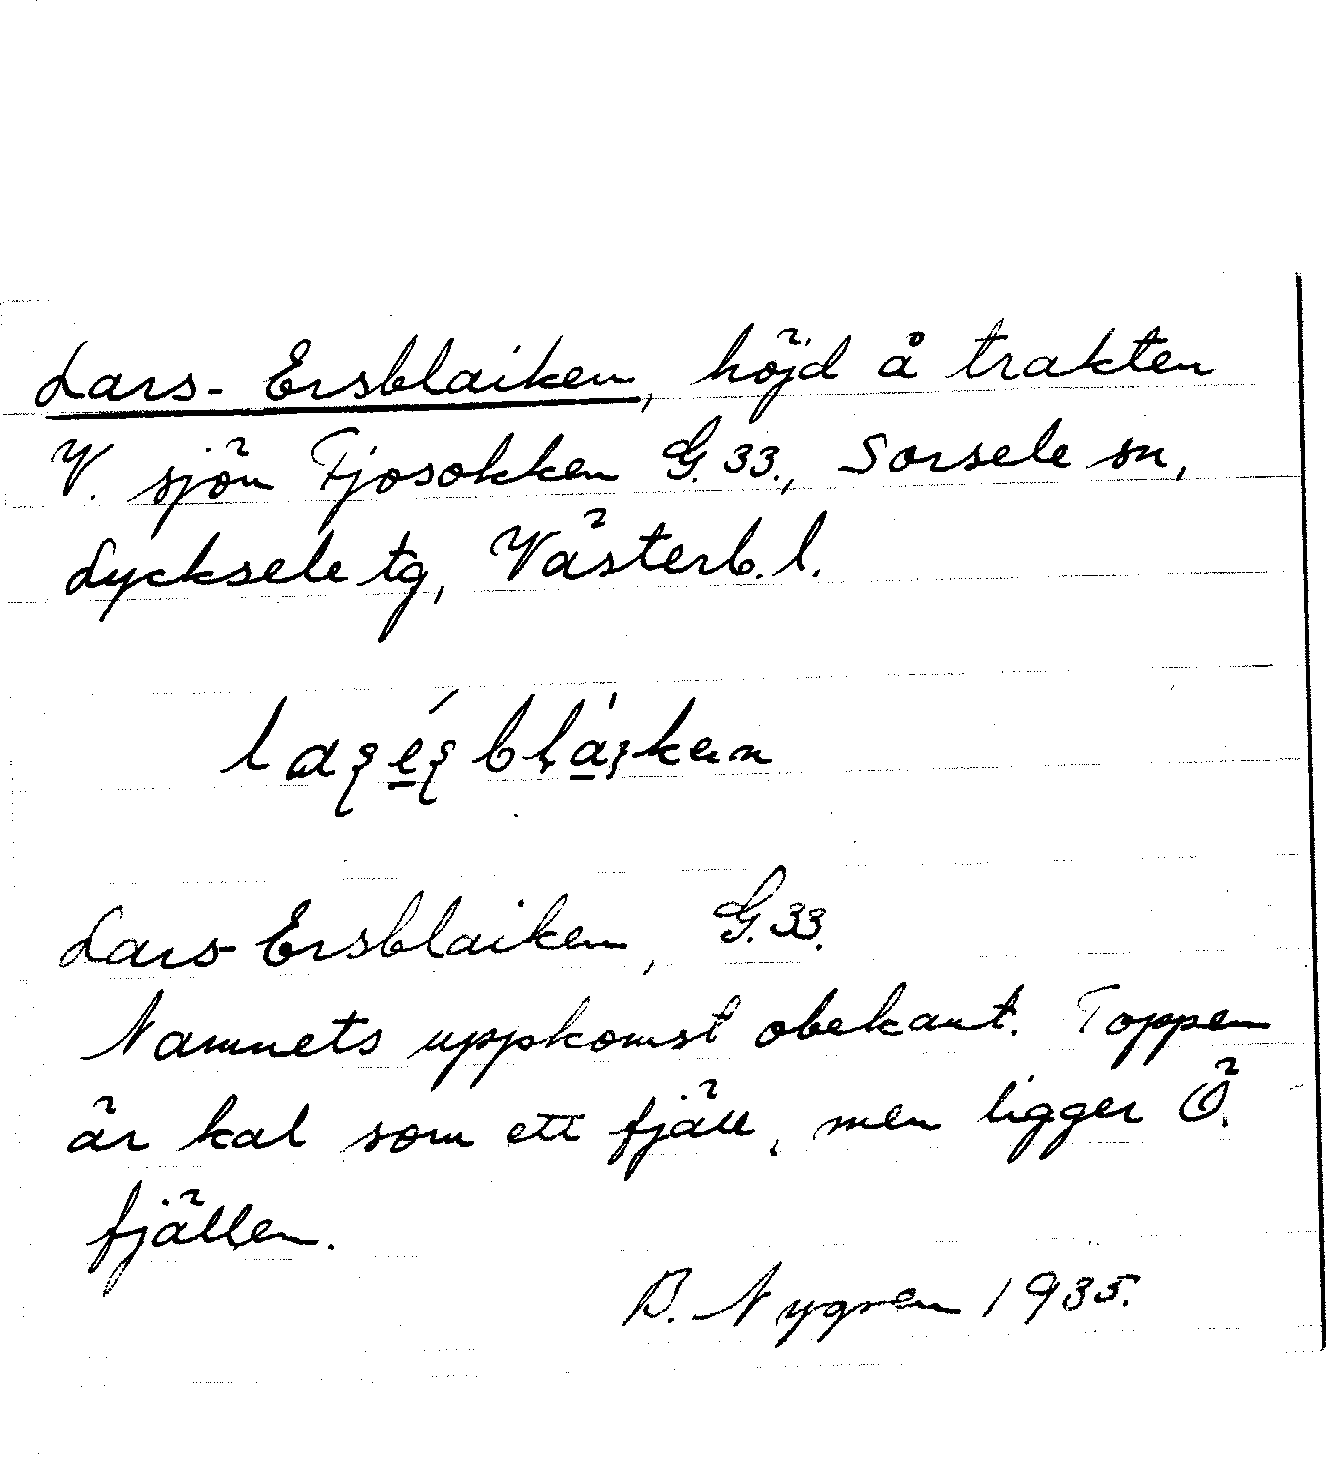 Lars-Ersblaiken, höjd å trakten
V. sjön Tjosokken G.33., Sorsele sn,
Lycksele tg, Västerb.l.
Lars-Ersblaiken, G.33.
Namnets uppkomst obekant. Toppen
är kal som ett fjäll, men ligger Ö.
fjällen.
B. Nygren 1935.